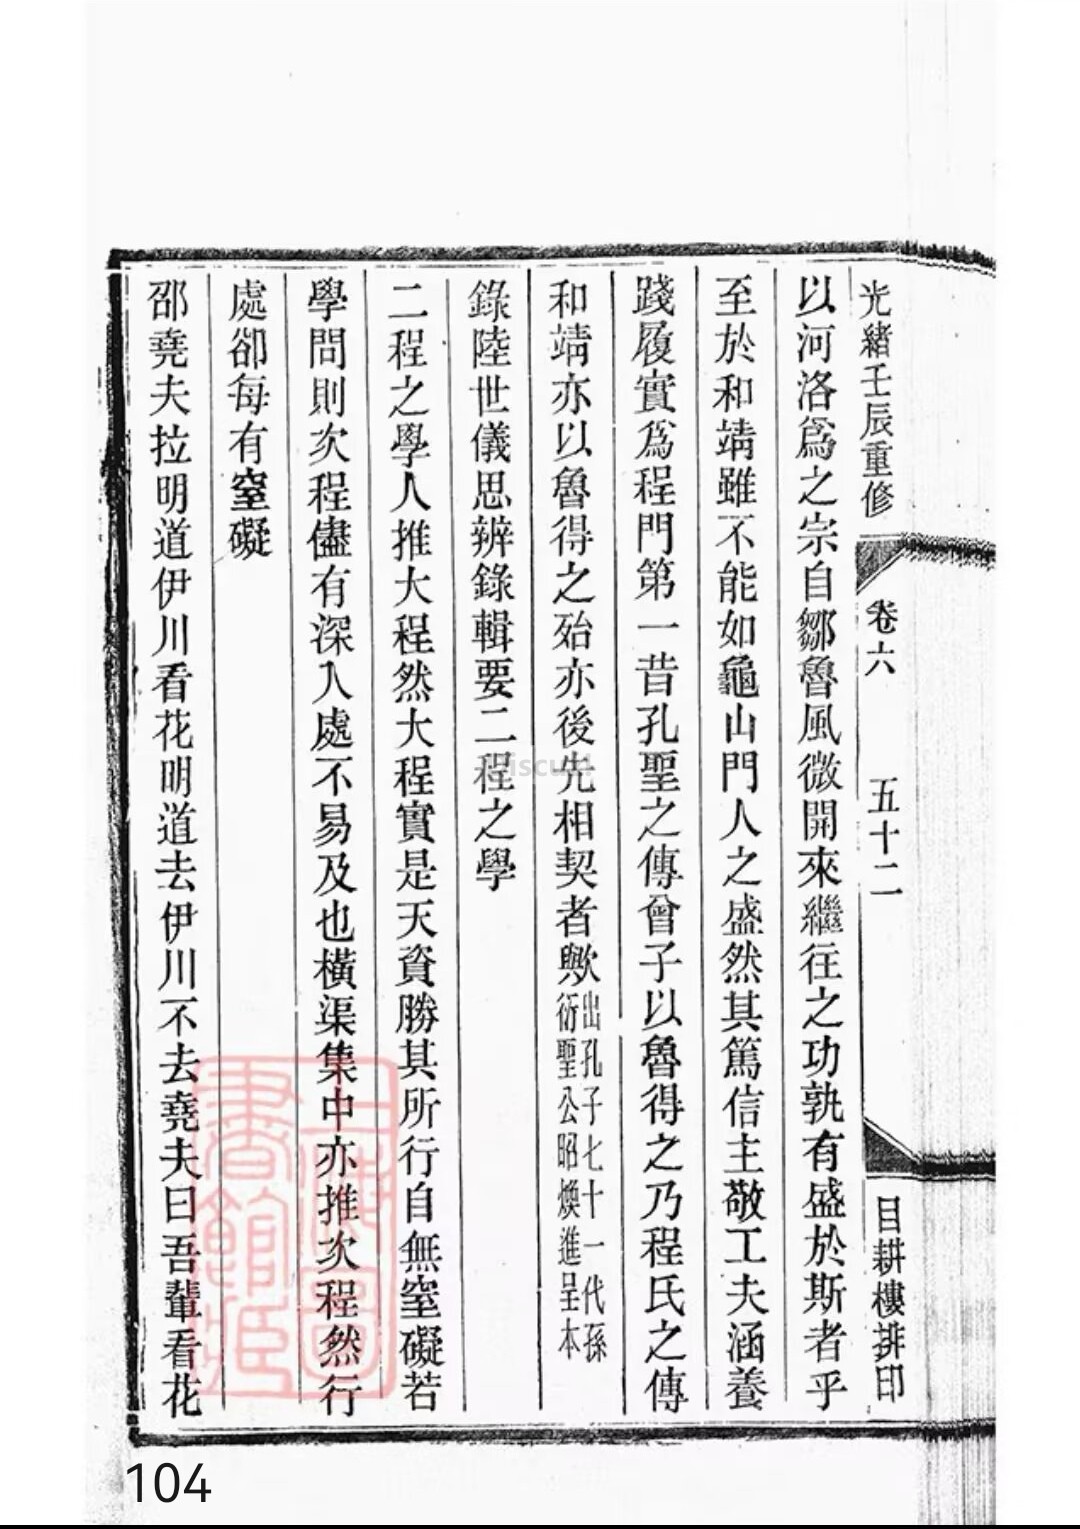 光緒壬辰重修
卷六
五十二
目耕樓排印
以河洛爲之宗自鄒魯風微開來繼往之功孰有盛於斯者乎
至於和靖雖不能如龜山門人之盛然其篤信主敬工夫涵養
踐履實爲程門第一昔孔聖之傳曾子以魯得之乃程氏之傳
和靖亦以魯得之殆亦後先相契者歟
出孔子七十一代孫
衍聖公昭煥進呈本
錄陸世儀思辨錄輯要二程之學
二程之學人推大程然大程實是天資勝其所行自無窒礙若
學問則次程儘有深入處不易及也橫渠集中亦推次程然行
處卻每有窒礙
邵堯夫拉明道伊川看花明道去伊川不去堯夫曰吾輩看花
上海圖
書館藏
104